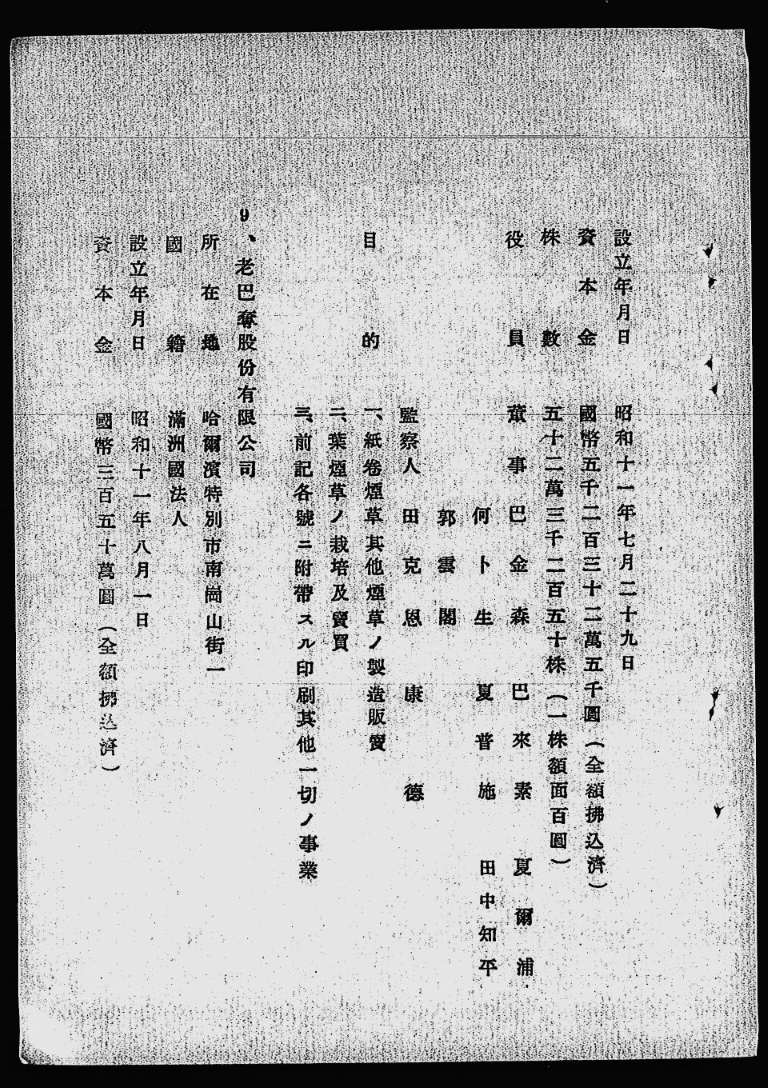 設立年月日 昭和十一年七月二十九日
資本金 國幣五千二百三十二萬五千圓(全額拂込濟)
株數 五十二萬三千二百五十株(一株額面百圓)
役員 董事 巴金森 巴來素 夏爾浦
何卜生 夏普施 田中知平
郭雲閣
監察人 田克恩 康德
目的 一、紙卷煙草其他煙草ノ製造販賣
二、葉煙草ノ栽培及賣買
三、前記各號ニ附帶スル印刷其他一切ノ事業
9、老巴奪股份有限公司
所在地 哈爾濱特別市南崗山街一
國籍 滿洲國法人
設立年月日 昭和十一年八月一日
資本金 國幣三百五十萬圓(全額拂込濟)